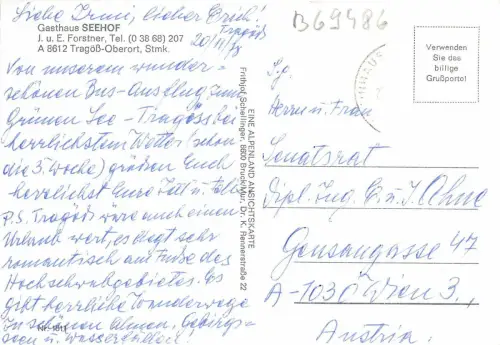 Liebe Irmi, lieber Erich!
Tragöß
20/11/78
Gasthaus SEEHOF
J. u. E. Forstner, Tel. (0 38 68) 207
A 8612 Tragöß-Oberort, Stmk.
Von unserem wunder-
schönen Bus-Ausflug zum
Grünen See - Tragöss bei
herrlichstem Wetter (schon
die 3. Woche) grüßen Euch
herzlichst Eure
P.S. Tragöß wäre auch einen
Urlaub wert, es liegt sehr
romantisch am Fuße des
Hochschwabgebietes. Es
gibt herrliche Wanderwege
zu schönen Almen, Gebirgs-
seen u. Wasserfällen!
EINE ALPENLAND ANSICHTSKARTE
Frithjof Schellinger, 8600 Bruck/Mur, Dr. K. Rennerstraße 22
B69486
Verwenden
Sie das
billige
Grußporto!
Sg.
Herrn u. Frau
Senatsrat
Dipl. Ing. E. u. I. Ahne
Gensangasse 47
A-1030 Wien 3,
Austria.